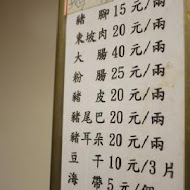 豬腳15元/兩
東坡肉20元/兩
大腸40元/兩
粉腸25元/兩
豬皮20元/兩
豬尾巴20元/兩
豬耳朵20元/兩
豆干10元/3片
海帶5元/個